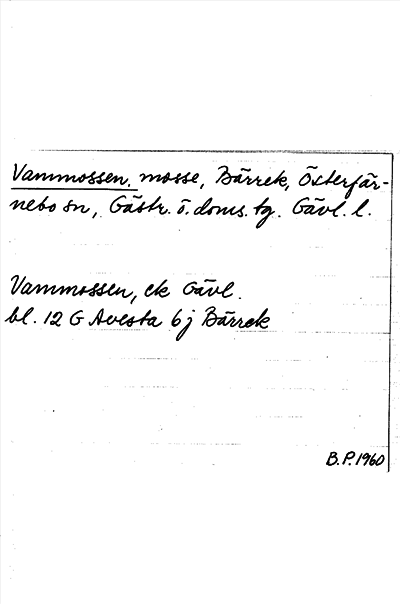 Vammossen, mosse, Bärrek, Österfär-
nebo sn, Gästr. ö. doms. tg. Gävl. l.
Vammossen, ek Gävl.
bl. 12 G Avesta 6j Bärrek
B.P. 1960